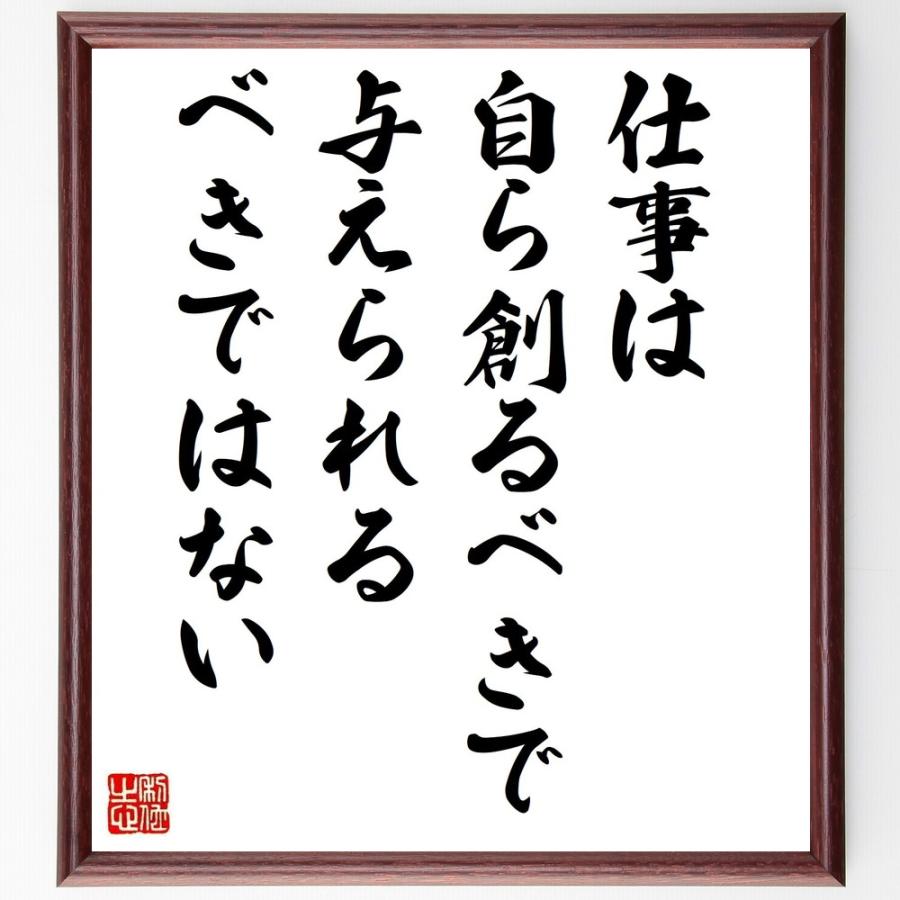 仕事は
自ら創るべきで
与えられる
べきではない